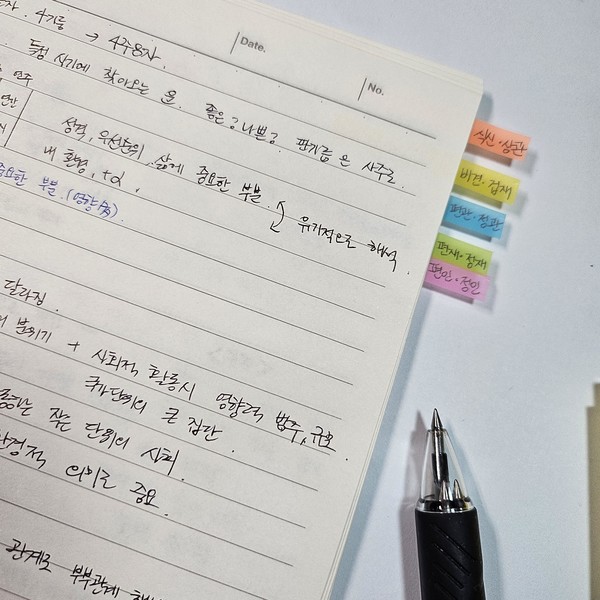 Date.
No.
4기둥 → 4주8자.
특정 시기에 찾아오는 운. 좋은? 나쁜? 판가름은 사주로.
성격, 우선순위, 삶에 중요한 부분.
내 환경, +α.
유기적으로 해석.
중요한 부분. (영향多).
달라짐.
분위기 + 사회적 활동시 영향력 범주, 규모.
국가단위의 큰 집단.
작은 단위의 사회.
의미로 중요.
관계로 부부관계
식신·상관
비견·겁재
편관·정관
편재·정재
편인·정인